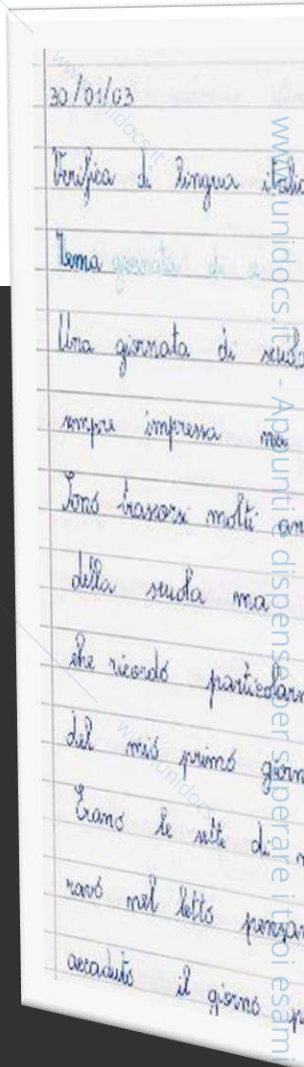 30/01/03
Verifica di lingua italia
Tema giornata di
Una giornata di scuola
sempre impressa nei
Sono trascorsi molti an
della scuola ma
che ricordo particolare
del mio primo giorn
Erano le sette di
ravo nel letto pensan
accaduto il giorno p
www.unidocs.it - Appunti e dispense per superare i tuoi esami
www.unidocs.it
www.unidocs